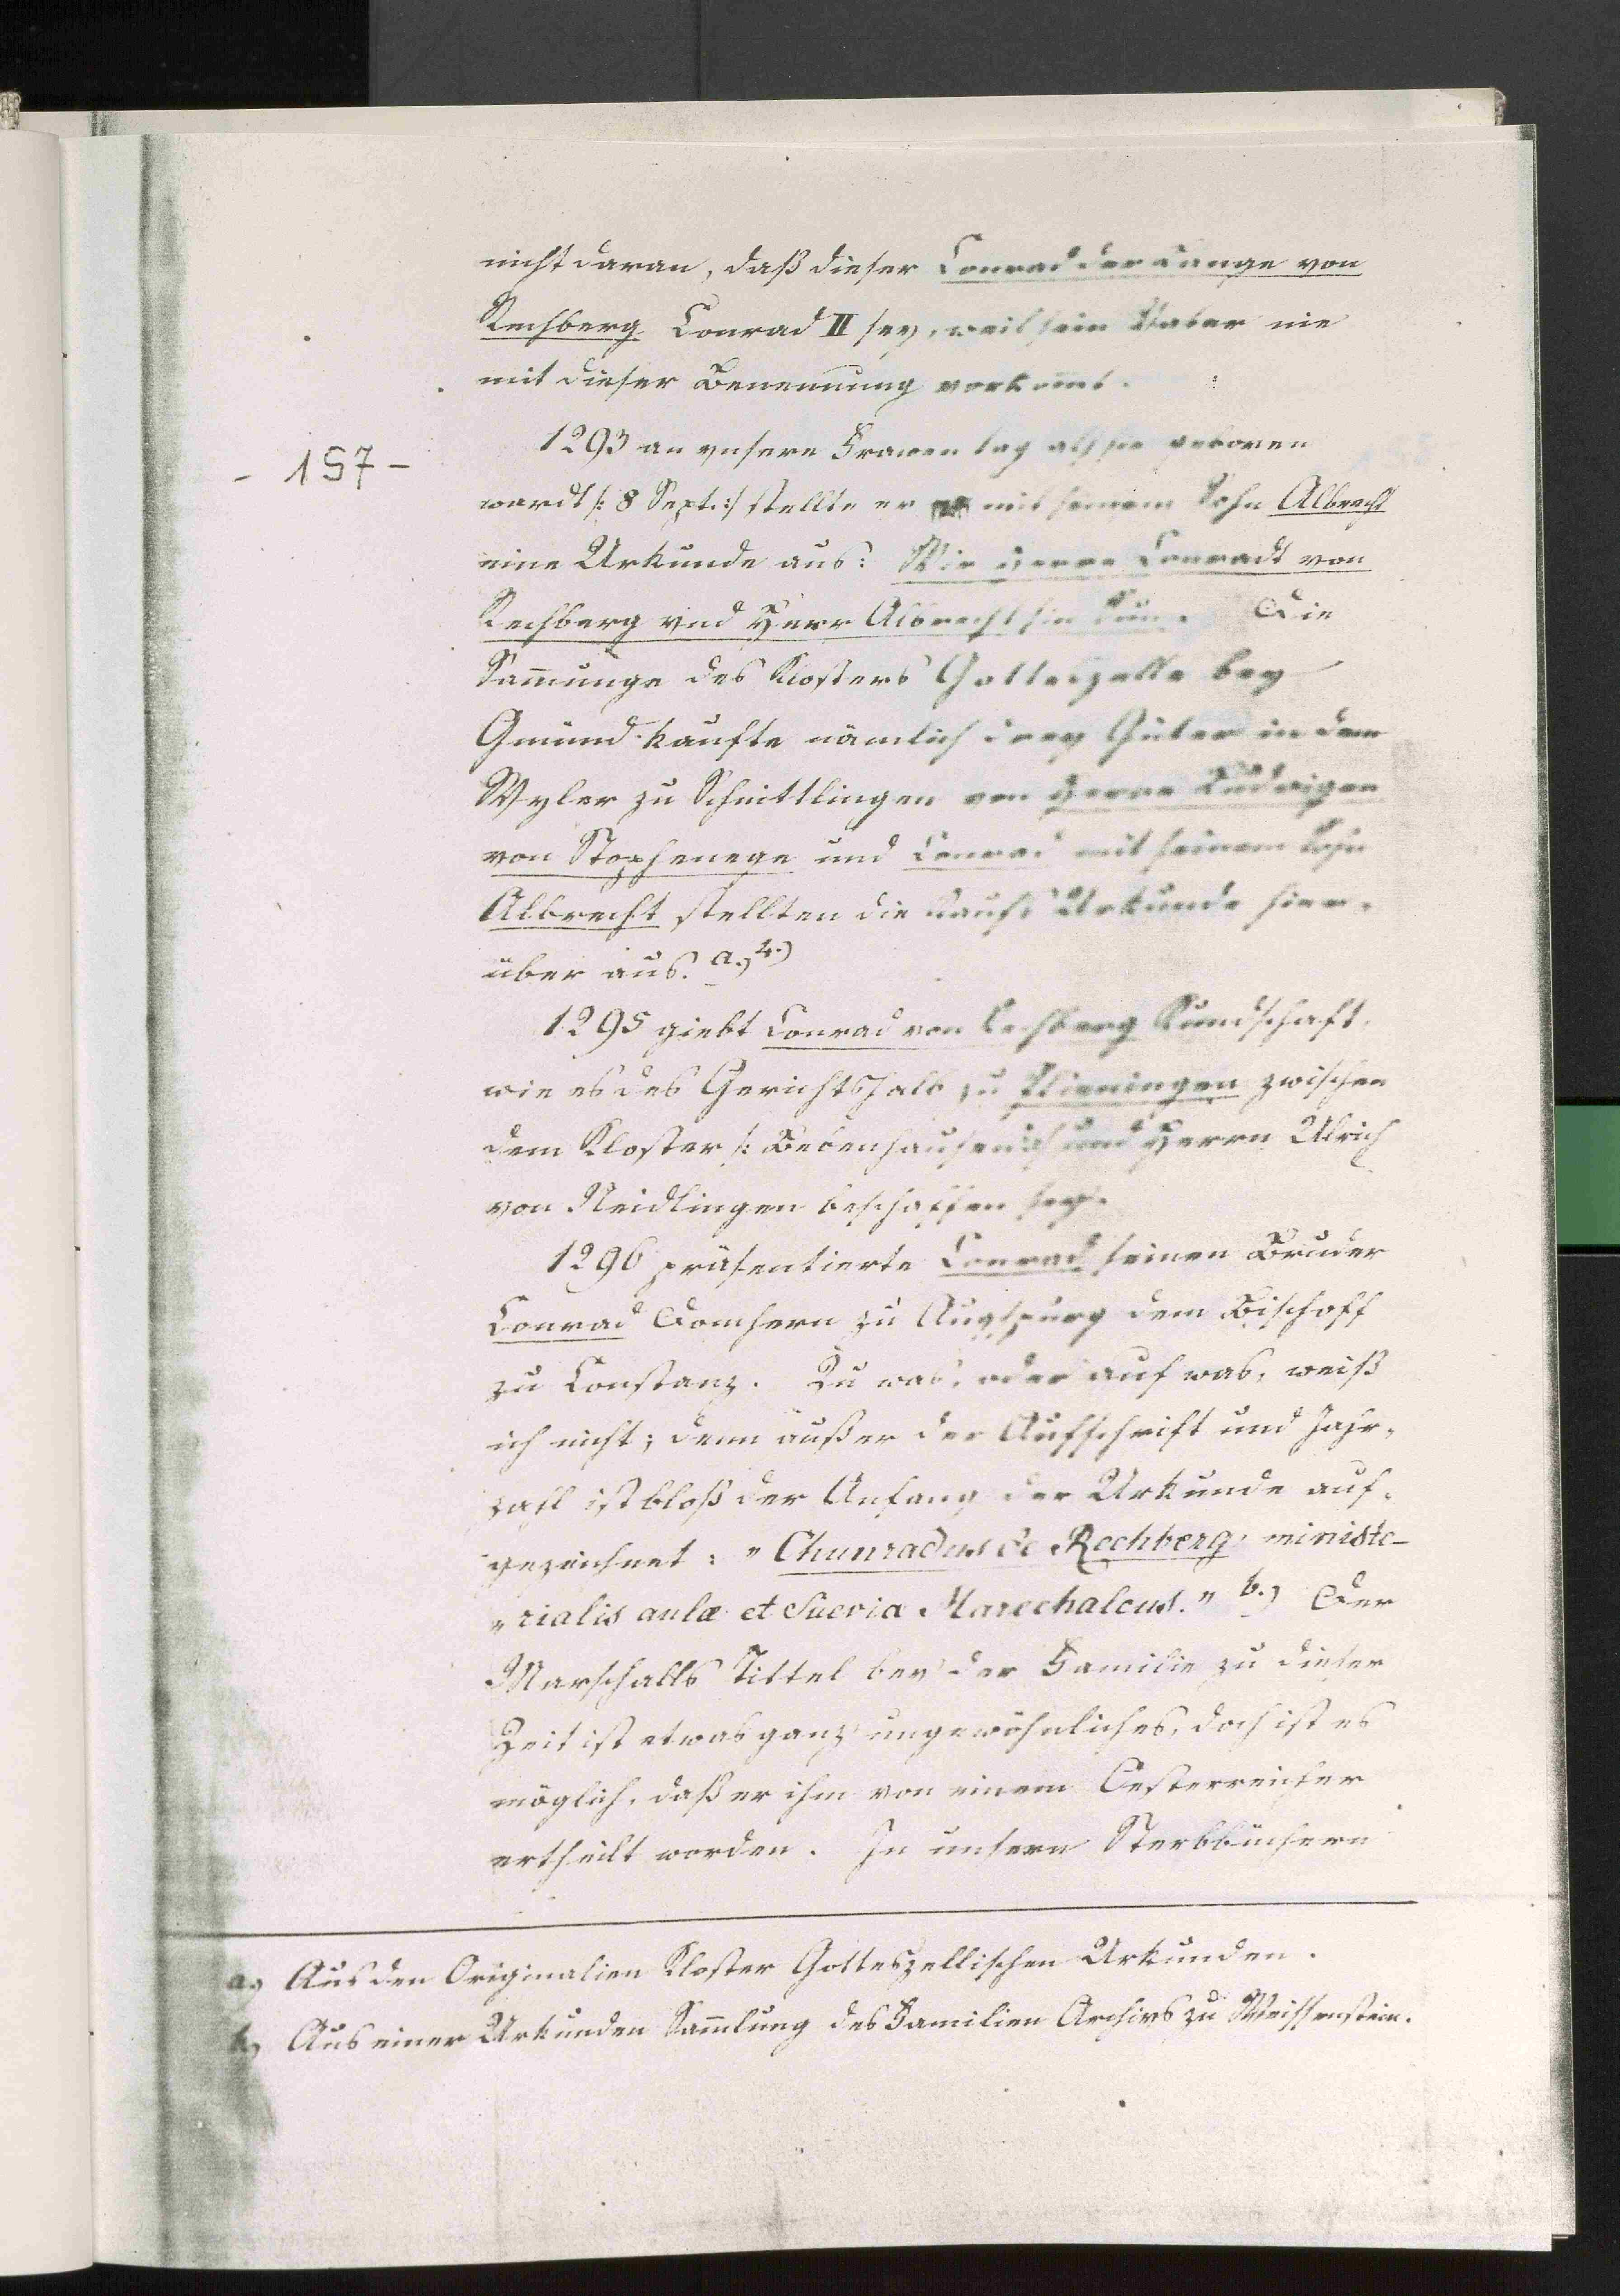 nicht daran, daß dieser Conrad der Lange von
Rechberg Conrad II sey, weil sein Vater nie
mit dieser Benennung vorkommt.
1293 an vnsere Frawen tag als sie geboren
- 157 -
wardt /: 8 Sept. :/ stellte er mit seinem Sohn Albrecht
eine Urkunde aus: Wir Herre Conradt von
Rechberg vnd Herr Albrecht sin Sun. Die
Sam̄unge des Klosters Gotteszelle bey
Gmünd kaufte nämlich drey Güter in dem
Wyler zu Schnittlingen von Herre Ludwigen
von Stophenege und Conrad mit seinem Sohn
Albrecht stellten die Kaufs Urkunde hier-
über aus. a.)
1295 giebt Conrad von Rechberg Kundschaft,
wie es des Gerichtshalb zu Plieningen zwischen
dem Kloster /: Bebenhausen :/ und Herrn Ulrich
von Neidlingen beschaffen sey.
1296 präsentierte Conrad seinen Bruder
Conrad Domherrn zu Augspurg dem Bischoff
zu Constanz. Zu was, oder auf was, weiß
ich nicht; denn außer der Aufschrift und Jahr-
zahl ist bloß der Anfang der Urkunde auf-
gezeichnet: „Chunradus de Rechberg ministe-
„rialis aulæ et Suevia Marechalcus." b.) Der
Marschalls Tittel bey der Familie zu dieser
Zeit ist etwas ganz ungewöhnliches, doch ist es
möglich, daß er ihm von einem Oesterreicher
ertheilt worden. In unsern Sterbbüchern
a.) Aus den Originalien Kloster Gotteszellischen Urkunden.
b.) Aus einer Urkunden Sam̄lung des Familien Archivs zu Weissenstein.